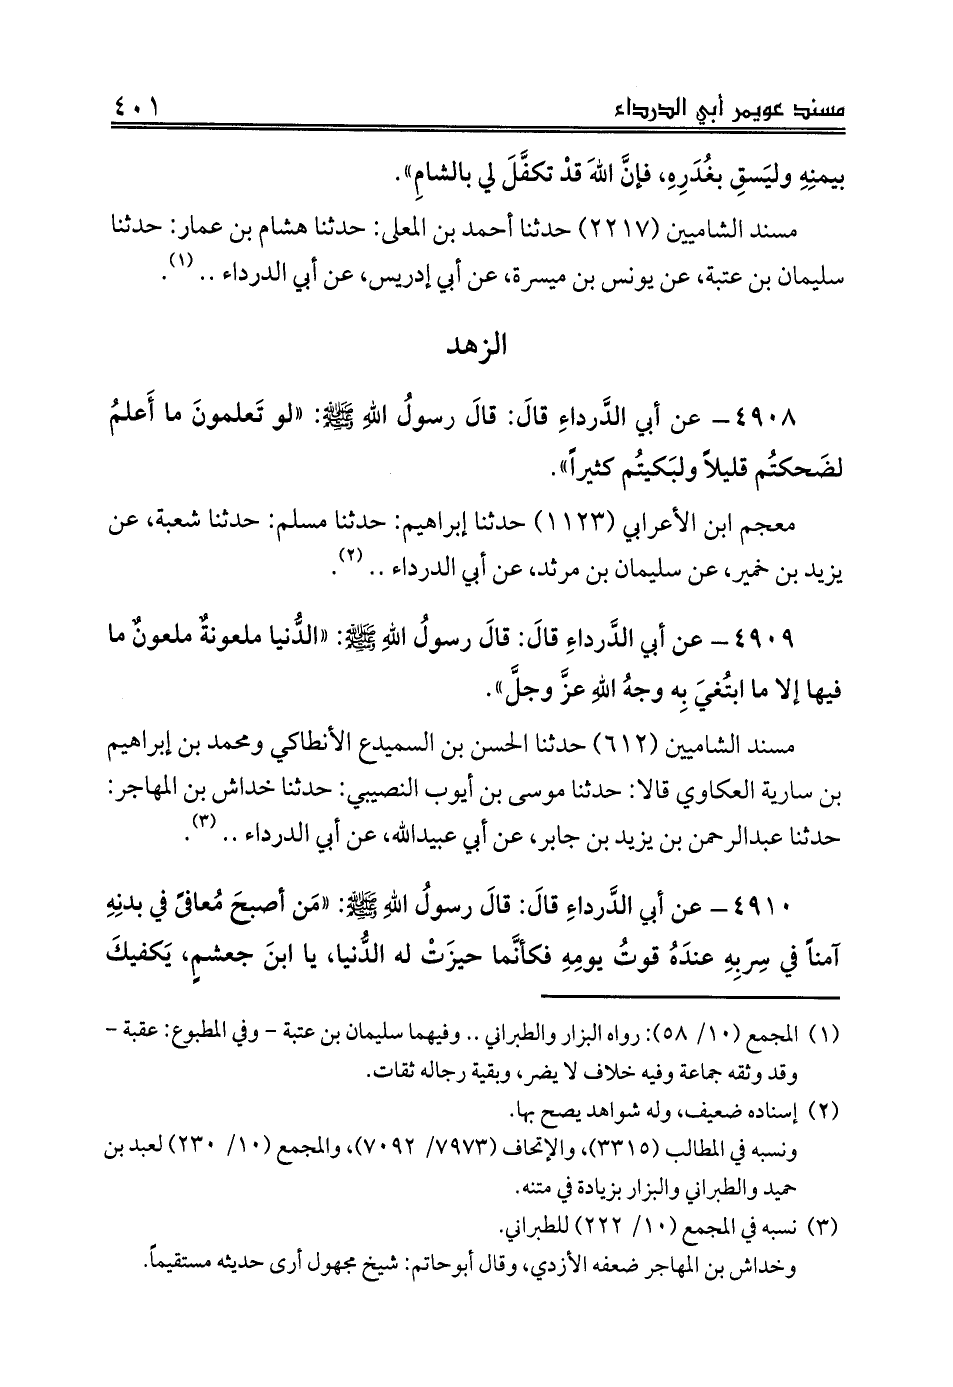 مسند عويمر أبي الدرداء ٤٠١
بيمنِهِ وليَسقِ بغُدَرِهِ، فإنَّ اللهَ قدْ تكفَّلَ لي بالشامِ».
مسند الشاميين (٢٢١٧) حدثنا أحمد بن المعلى: حدثنا هشام بن عمار: حدثنا
سليمان بن عتبة، عن يونس بن ميسرة، عن أبي إدريس، عن أبي الدرداء .. (١).
الزهد
٤٩٠٨ – عن أبي الدَّرداءِ قالَ: قالَ رسولُ اللهِ ﷺ: «لو تَعلمونَ ما أَعلمُ
لضَحكتُم قليلاً ولبَكيتُم كثيراً».
معجم ابن الأعرابي (١١٢٣) حدثنا إبراهيم: حدثنا مسلم: حدثنا شعبة، عن
يزيد بن خمير، عن سليمان بن مرثد، عن أبي الدرداء .. (٢).
٤٩٠٩ – عن أبي الدَّرداءِ قالَ: قالَ رسولُ اللهِ ﷺ: «الدُّنيا ملعونةٌ ملعونٌ ما
فيها إلا ما ابتُغيَ بِه وجهُ اللهِ عزَّ وجلَّ».
مسند الشاميين (٦١٢) حدثنا الحسن بن السميدع الأنطاكي ومحمد بن إبراهيم
بن سارية العكاوي قالا: حدثنا موسى بن أيوب النصيبي: حدثنا خداش بن المهاجر:
حدثنا عبدالرحمن بن يزيد بن جابر، عن أبي عبيدالله، عن أبي الدرداء .. (٣).
٤٩١٠ – عن أبي الدَّرداءِ قالَ: قالَ رسولُ اللهِ ﷺ: «مَن أصبحَ مُعافىً في بدنِهِ
آمناً في سِربِهِ عندَهُ قوتُ يومِهِ فكأنَّما حيزَتْ له الدُّنيا، يا ابنَ جعشمٍ، يَكفيكَ
(١) المجمع (١٠/ ٥٨): رواه البزار والطبراني .. وفيهما سليمان بن عتبة – وفي المطبوع: عقبة –
وقد وثقه جماعة وفيه خلاف لا يضر، وبقية رجاله ثقات.
(٢) إسناده ضعيف، وله شواهد يصح بها.
ونسبه في المطالب (٣٣١٥)، والإتحاف (٧٩٧٣/ ٧٠٩٢)، والمجمع (١٠/ ٢٣٠) لعبد بن
حميد والطبراني والبزار بزيادة في متنه.
(٣) نسبه في المجمع (١٠/ ٢٢٢) للطبراني.
وخداش بن المهاجر ضعفه الأزدي، وقال أبوحاتم: شيخ مجهول أرى حديثه مستقيماً.